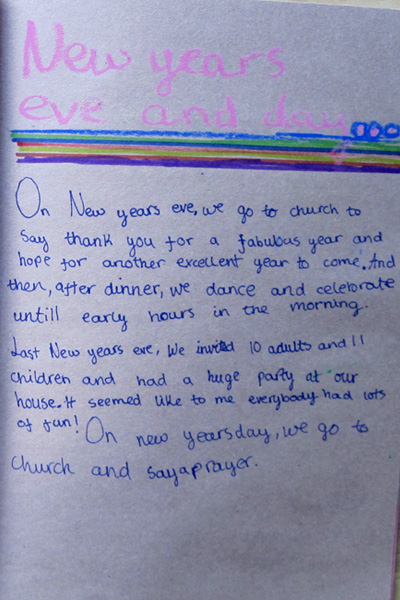 New years
eve and day
On New years eve, we go to church to
say thank you for a fabulous year and
hope for another excellent year to come. And
then, after dinner, we dance and celebrate
untill early hours in the morning.
Last New years eve, We invited 10 adults and 11
children and had a huge party at our
house. It seemed like to me everybody had lots
of fun! On new yearsday, we go to
church and say a prayer.